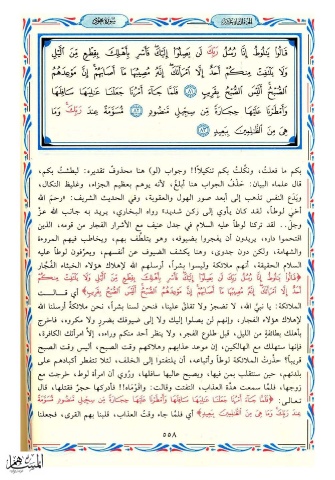 قَالُوا يَٰلُوطُ إِنَّا رُسُلُ رَبِّكَ لَن يَصِلُوٓا۟ إِلَيْكَ فَأَسْرِ بِأَهْلِكَ بِقِطْعٍ مِّنَ ٱلَّيْلِ
وَلَا يَلْتَفِتْ مِنكُمْ أَحَدٌ إِلَّا ٱمْرَأَتَكَ إِنَّهُۥ مُصِيبُهَا مَآ أَصَابَهُمْ إِنَّ مَوْعِدَهُمُ
ٱلصُّبْحُ أَلَيْسَ ٱلصُّبْحُ بِقَرِيبٍ ۝٨١ فَلَمَّا جَآءَ أَمْرُنَا جَعَلْنَا عَٰلِيَهَا سَافِلَهَا
وَأَمْطَرْنَا عَلَيْهَا حِجَارَةً مِّن سِجِّيلٍ مَّنضُودٍ ۝٨٢ مُّسَوَّمَةً عِندَ رَبِّكَ وَمَا
هِىَ مِنَ ٱلظَّٰلِمِينَ بِبَعِيدٍ ۝٨٣
بكم ما فعلتُ، ونكَّلتُ بكم تنكيلاً!! وجواب (لو) هنا محذوفٌ تقديره: لبطشتُ بكم،
قال علماء البيان: حَذْفُ الجواب هنا أبلغُ، لأنه يوهم بعظيم الجزاء، وغليظ النكال،
ويَدَع النفس تذهب إلى أبعد صور الهول والعقوبة، وفي الحديث الشريف: «رحمَ الله
أخي لوطاً، لقد كان يأوي إلى ركن شديد» رواه البخاري، يريد به جانب الله عزَّ
وجلَّ.. لقد تركنا لوطاً عليه السلام في جدل عنيف مع الأشرار الفجار من قومه، الذين
اقتحموا داره، يريدون أن يفجروا بضيوفه، وهو يتلطَّف بهم، ويخاطب فيهم المروءة
والشهامة، ولكن دون جدوى، وهنا يكشف الضيوف عن أنفسهم، ويعرِّفون لوطاً عليه
السلام الحقيقة، أنهم ملائكة وليسوا بشراً، أرسلهم الله لإهلاك هؤلاء الخبثاء الفُجَّار
﴿قَالُوا يَٰلُوطُ إِنَّا رُسُلُ رَبِّكَ لَن يَصِلُوٓا۟ إِلَيْكَ فَأَسْرِ بِأَهْلِكَ بِقِطْعٍ مِّنَ ٱلَّيْلِ وَلَا يَلْتَفِتْ مِنكُمْ
أَحَدٌ إِلَّا ٱمْرَأَتَكَ إِنَّهُۥ مُصِيبُهَا مَآ أَصَابَهُمْ إِنَّ مَوْعِدَهُمُ ٱلصُّبْحُ أَلَيْسَ ٱلصُّبْحُ بِقَرِيبٍ﴾ أي قالت
الملائكة: يا نبيَّ الله، لا تضجرْ ولا تقلقْ علينا، فنحن لسنا بشراً، نحن ملائكةٌ أرسلنا الله
لإهلاك هؤلاء الفجار، وإنهم لن يصلوا إليك ولا إلى ضيوفك بضررٍ ولا مكروه، فاخرج
بأهلك بطائفةٍ من الليل، قبل طلوع الفجر، ولا ينظر أحد منكم وراءه، إلاَّ امرأتك الكافرة،
فإنها ستهلك مع الهالكين، إن موعد عذابهم وهلاكهم وقت الصبح، أليس وقت الصبح
قريباً؟ حذَّرتِ الملائكةُ لوطاً وأتباعه، أن يلتفتوا إلى الخلف، لئلا تتفطر أكبادهم على
بلدتهم، حين ستنقلب بمن فيها، ويصبح عاليها سافلها، ورُوي أن امرأة لوط، خرجت مع
زوجها، فلما سمعت هدَّة العذاب، التفتت وقالت: واقَوْمَاه!! فأدركها حجرٌ فقتلها، قال
تعالى: ﴿فَلَمَّا جَآءَ أَمْرُنَا جَعَلْنَا عَٰلِيَهَا سَافِلَهَا وَأَمْطَرْنَا عَلَيْهَا حِجَارَةً مِّن سِجِّيلٍ مَّنضُودٍ مُّسَوَّمَةً
عِندَ رَبِّكَ وَمَا هِىَ مِنَ ٱلظَّٰلِمِينَ بِبَعِيدٍ﴾ أي فلما جاء وقتُ العذاب، قلبنا بهم القرى، فجعلنا
٥٥٨